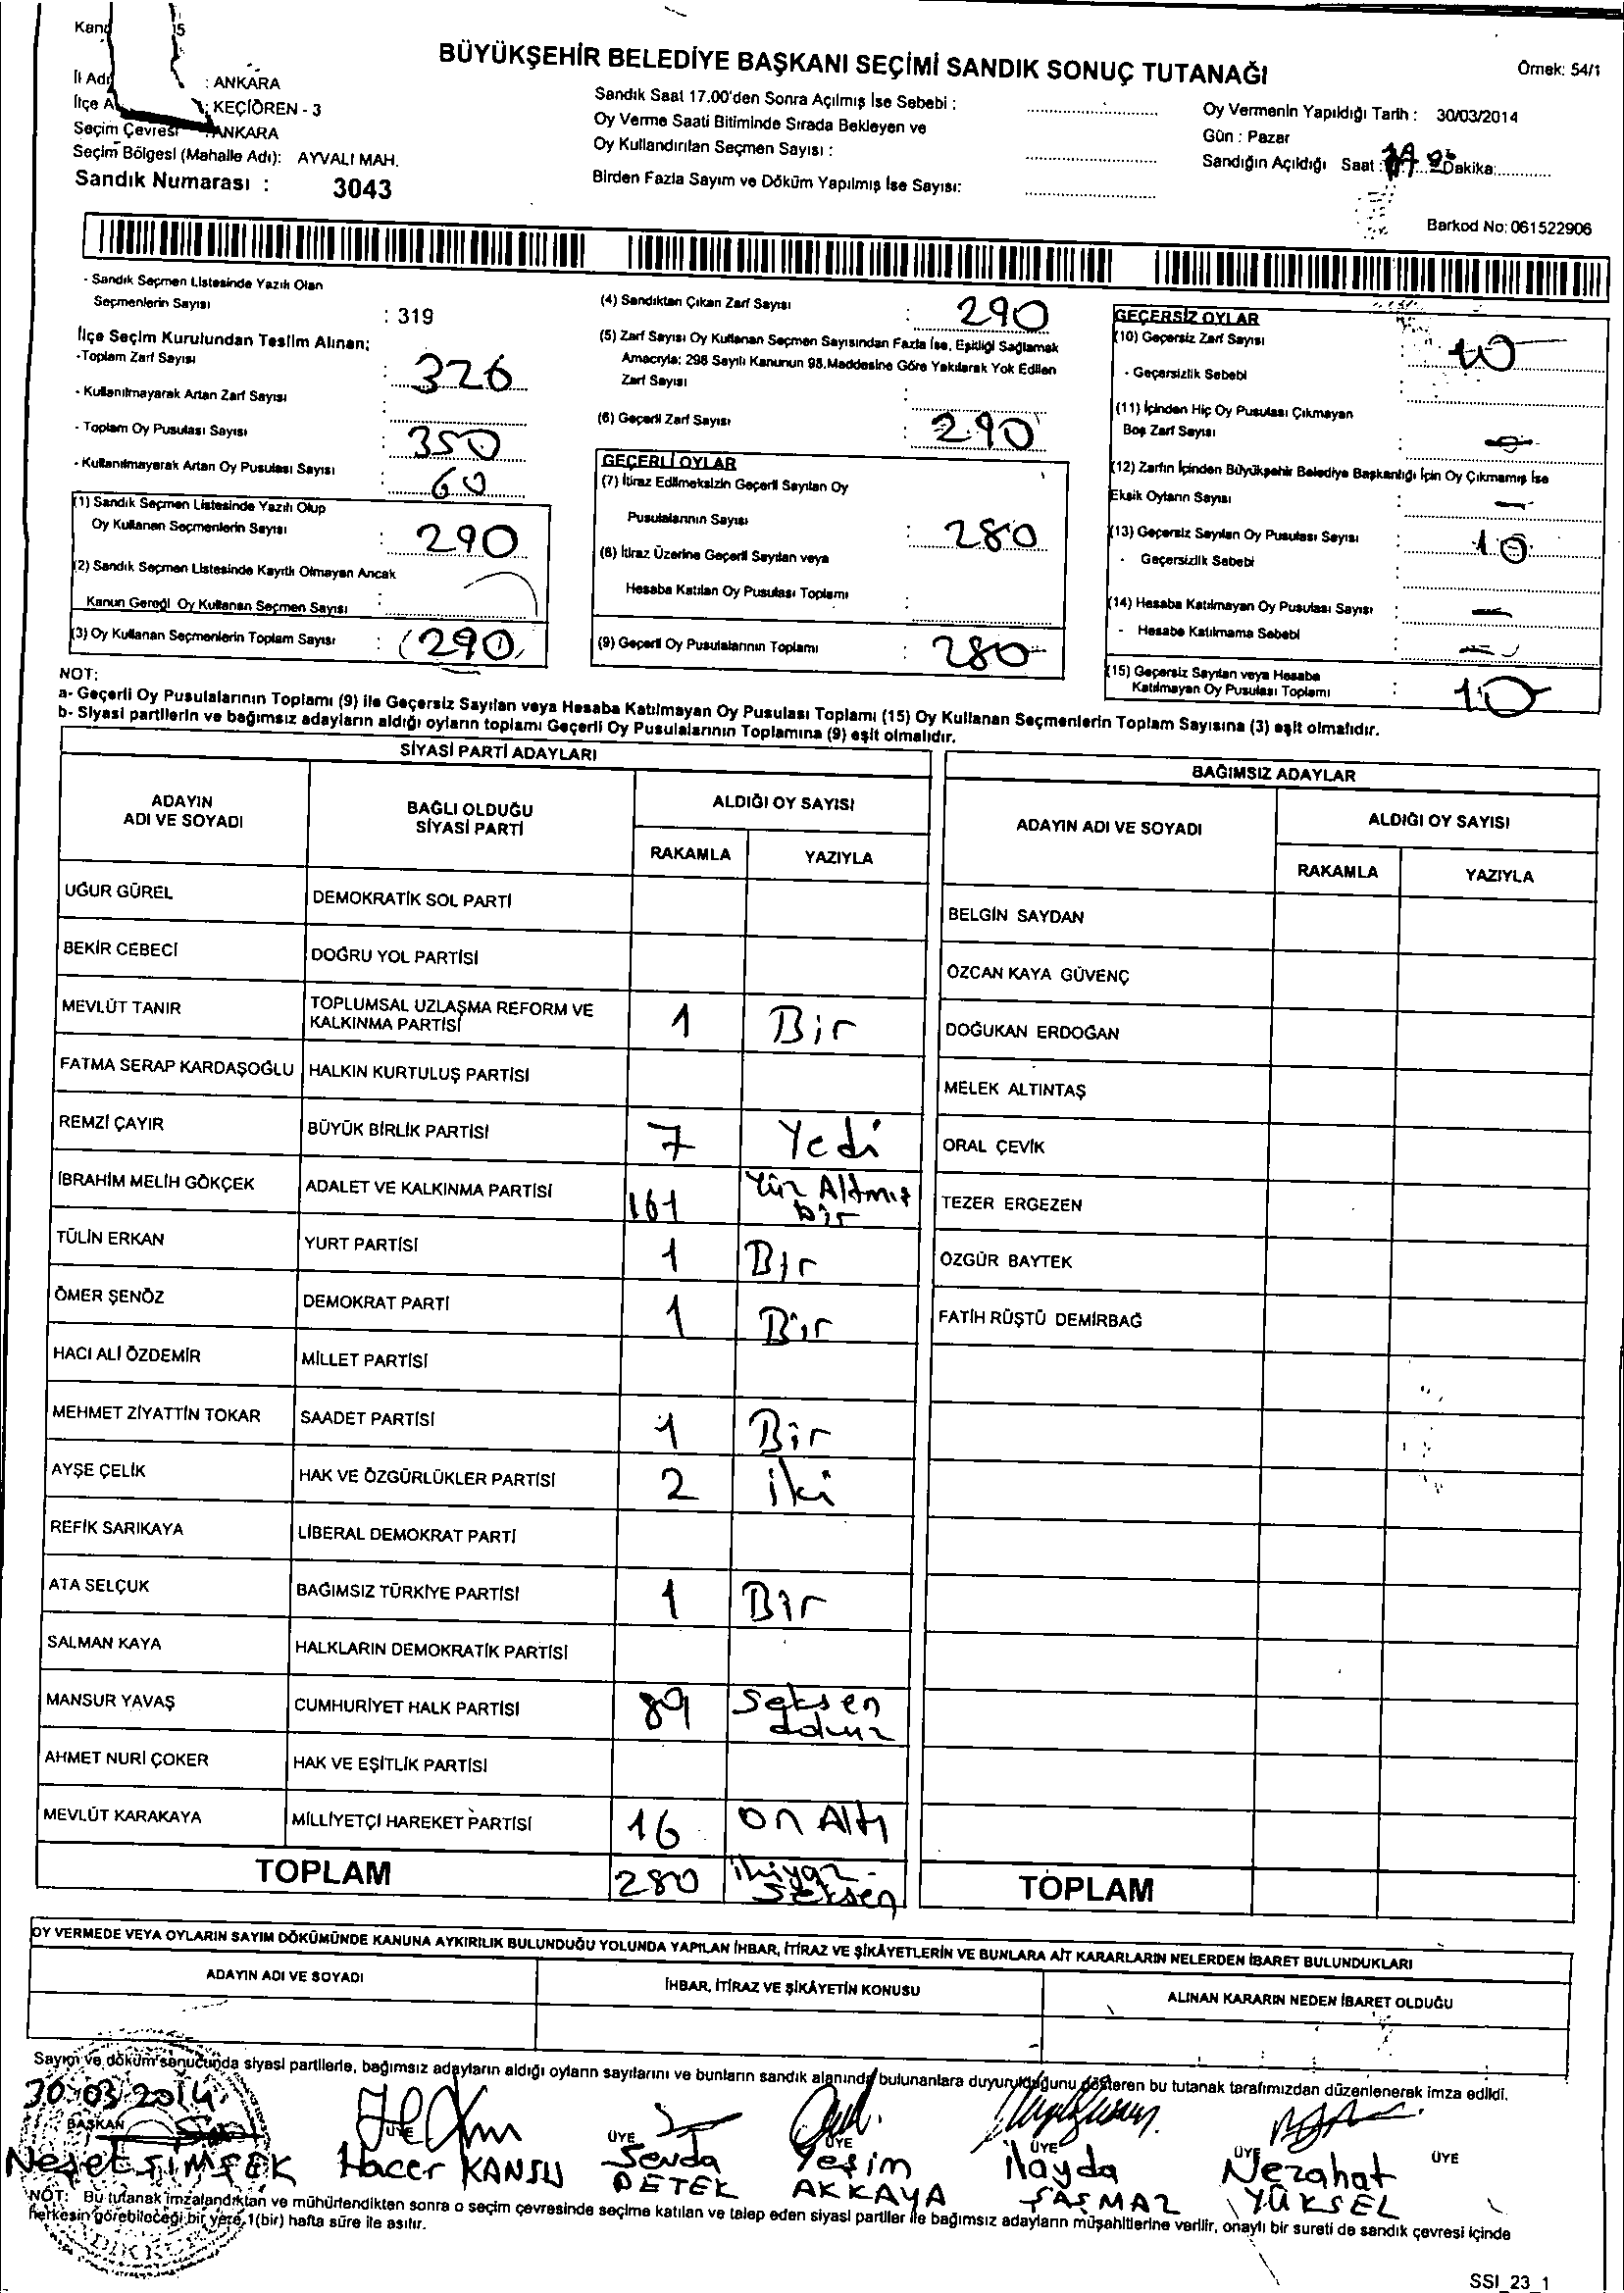 BÜYÜKŞEHİR BELEDİYE BAŞKANI SEÇİMİ SANDIK SONUÇ TUTANAĞI
Örnek: 54/1
: ANKARA
: KEÇİÖREN - 3
Seçim Çevresi : ANKARA
Seçim Bölgesi (Mahalle Adı): AYVALI MAH.
Sandık Numarası : 3043
Sandık Saat 17.00'den Sonra Açılmış İse Sebebi :
Oy Verme Saati Bitiminde Sırada Bekleyen ve
Oy Kullandırılan Seçmen Sayısı :
Birden Fazla Sayım ve Döküm Yapılmış İse Sayısı:
Oy Vermenin Yapıldığı Tarih : 30/03/2014
Gün : Pazar
Sandığın Açıldığı Saat : Dakika:
Barkod No: 061522906
- Sandık Seçmen Listesinde Yazılı Olan
Seçmenlerin Sayısı : 319
İlçe Seçim Kurulundan Teslim Alınan;
-Toplam Zarf Sayısı : 326
- Kullanılmayarak Artan Zarf Sayısı :
- Toplam Oy Pusulası Sayısı : 350
- Kullanılmayarak Artan Oy Pusulası Sayısı : 60
(1) Sandık Seçmen Listesinde Yazılı Olup
Oy Kullanan Seçmenlerin Sayısı : 290
(2) Sandık Seçmen Listesinde Kayıtlı Olmayan Ancak
Kanun Gereği Oy Kullanan Seçmen Sayısı :
(3) Oy Kullanan Seçmenlerin Toplam Sayısı : 290
(4) Sandıktan Çıkan Zarf Sayısı : 290
(5) Zarf Sayısı Oy Kullanan Seçmen Sayısından Fazla İse, Eşitliği Sağlamak
Amacıyla; 298 Sayılı Kanunun 98.Maddesine Göre Yakılarak Yok Edilen
Zarf Sayısı :
(6) Geçerli Zarf Sayısı : 290
GEÇERLİ OYLAR
(7) İtiraz Edilmeksizin Geçerli Sayılan Oy
Pusulalarının Sayısı : 280
(8) İtiraz Üzerine Geçerli Sayılan veya
Hesaba Katılan Oy Pusulası Toplamı :
(9) Geçerli Oy Pusulalarının Toplamı : 280
GEÇERSİZ OYLAR
(10) Geçersiz Zarf Sayısı : 10
- Geçersizlik Sebebi :
(11) İçinden Hiç Oy Pusulası Çıkmayan
Boş Zarf Sayısı :
(12) Zarfın İçinden Büyükşehir Belediye Başkanlığı İçin Oy Çıkmamış İse
Eksik Oyların Sayısı : -
(13) Geçersiz Sayılan Oy Pusulası Sayısı : 10
- Geçersizlik Sebebi :
(14) Hesaba Katılmayan Oy Pusulası Sayısı : -
- Hesaba Katılmama Sebebi :
(15) Geçersiz Sayılan veya Hesaba
Katılmayan Oy Pusulası Toplamı : 10
NOT:
a- Geçerli Oy Pusulalarının Toplamı (9) ile Geçersiz Sayılan veya Hesaba Katılmayan Oy Pusulası Toplamı (15) Oy Kullanan Seçmenlerin Toplam Sayısına (3) eşit olmalıdır.
b- Siyasi partilerin ve bağımsız adayların aldığı oyların toplamı Geçerli Oy Pusulalarının Toplamına (9) eşit olmalıdır.
SİYASİ PARTİ ADAYLARI
ADAYIN ADI VE SOYADI BAĞLI OLDUĞU SİYASİ PARTİ ALDIĞI OY SAYISI
RAKAMLA YAZIYLA
UĞUR GÜREL DEMOKRATİK SOL PARTİ
BEKİR CEBECİ DOĞRU YOL PARTİSİ
MEVLÜT TANIR TOPLUMSAL UZLAŞMA REFORM VE KALKINMA PARTİSİ 1 Bir
FATMA SERAP KARDAŞOĞLU HALKIN KURTULUŞ PARTİSİ
REMZİ ÇAYIR BÜYÜK BİRLİK PARTİSİ 7 Yedi
İBRAHİM MELİH GÖKÇEK ADALET VE KALKINMA PARTİSİ 161 Yüz Altmış bir
TÜLİN ERKAN YURT PARTİSİ 1 Bir
ÖMER ŞENÖZ DEMOKRAT PARTİ 1 Bir
HACI ALİ ÖZDEMİR MİLLET PARTİSİ
MEHMET ZİYATTİN TOKAR SAADET PARTİSİ 1 Bir
AYŞE ÇELİK HAK VE ÖZGÜRLÜKLER PARTİSİ 2 iki
REFİK SARIKAYA LİBERAL DEMOKRAT PARTİ
ATA SELÇUK BAĞIMSIZ TÜRKİYE PARTİSİ 1 Bir
SALMAN KAYA HALKLARIN DEMOKRATİK PARTİSİ
MANSUR YAVAŞ CUMHURİYET HALK PARTİSİ 89 Seksen dokuz
AHMET NURİ ÇOKER HAK VE EŞİTLİK PARTİSİ
MEVLÜT KARAKAYA MİLLİYETÇİ HAREKET PARTİSİ 16 on Altı
TOPLAM 280 ikiyüz-Seksen
BAĞIMSIZ ADAYLAR
ADAYIN ADI VE SOYADI ALDIĞI OY SAYISI
RAKAMLA YAZIYLA
BELGİN SAYDAN
ÖZCAN KAYA GÜVENÇ
DOĞUKAN ERDOĞAN
MELEK ALTINTAŞ
ORAL ÇEVİK
TEZER ERGEZEN
ÖZGÜR BAYTEK
FATİH RÜŞTÜ DEMİRBAĞ
TOPLAM
OY VERMEDE VEYA OYLARIN SAYIM DÖKÜMÜNDE KANUNA AYKIRILIK BULUNDUĞU YOLUNDA YAPILAN İHBAR, İTİRAZ VE ŞİKÂYETLERİN VE BUNLARA AİT KARARLARIN NELERDEN İBARET BULUNDUKLARI
ADAYIN ADI VE SOYADI İHBAR, İTİRAZ VE ŞİKÂYETİN KONUSU ALINAN KARARIN NEDEN İBARET OLDUĞU
Sayım ve döküm sonucunda siyasi partilerle, bağımsız adayların aldığı oyların sayılarını ve bunların sandık alanında bulunanlara duyurulduğunu gösteren bu tutanak tarafımızdan düzenlenerek imza edildi.
30.03.2014
BAŞKAN ÜYE ÜYE ÜYE ÜYE ÜYE ÜYE
Neşet ŞİMŞEK Hacer KANSU Sevda DETEK Yeşim AKKAYA ilayda ŞAŞMAZ Nezahat YÜKSEL
NOT: Bu tutanak imzalandıktan ve mühürlendikten sonra o seçim çevresinde seçime katılan ve talep eden siyasi partiler ile bağımsız adayların müşahitlerine verilir, onaylı bir sureti de sandık çevresi içinde
herkesin görebileceği bir yere 1(bir) hafta süre ile asılır.
SSI_23_1